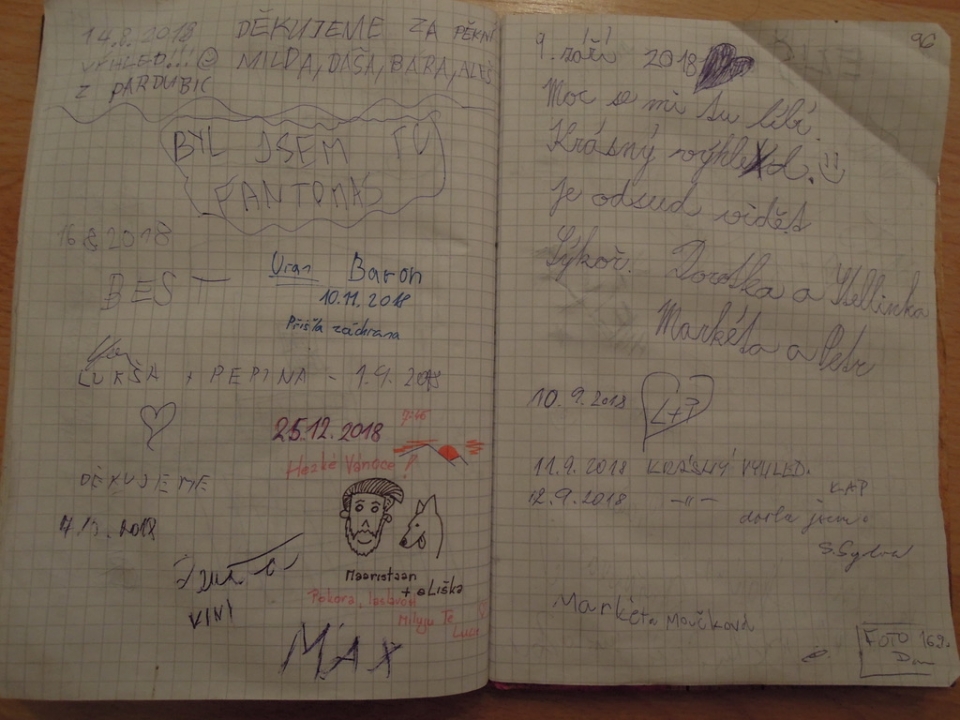 14.8.2018 DĚKUJEME ZA PĚKNÝ
VÝHLED!!! MILDA, DÁŠA, BÁRA, ALEŠ
Z PARDUBIC
BYL JSEM TU
FANTOMAS
16.8.2018
BES
Uran Baron
10.11.2018
Přišla záchrana
LUKŠA + PEPINA - 1.9.2018
25.12.2018
Hezké Vánoce!
DĚKUJEME
2018
Maaristaan
+ eLiška
Pokora, laskavost
Miluju Tě
VINI
MAX
96
9. září 2018
Moc se mi tu líbí.
Krásný výhled.
Je odsud vidět
Sýkoř. Dorotka a
Markéta a Petr
10.9.2018 L+P
11.9.2018 KRÁSNÝ VÝHLED.
12.9.2018 -"-
S. Sylva
Markéta
FOTO 16.9.